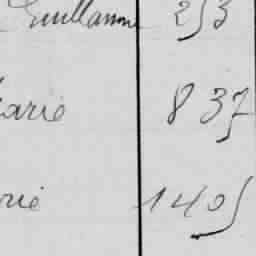 Guillaume 253
Marie 837
rie 1405